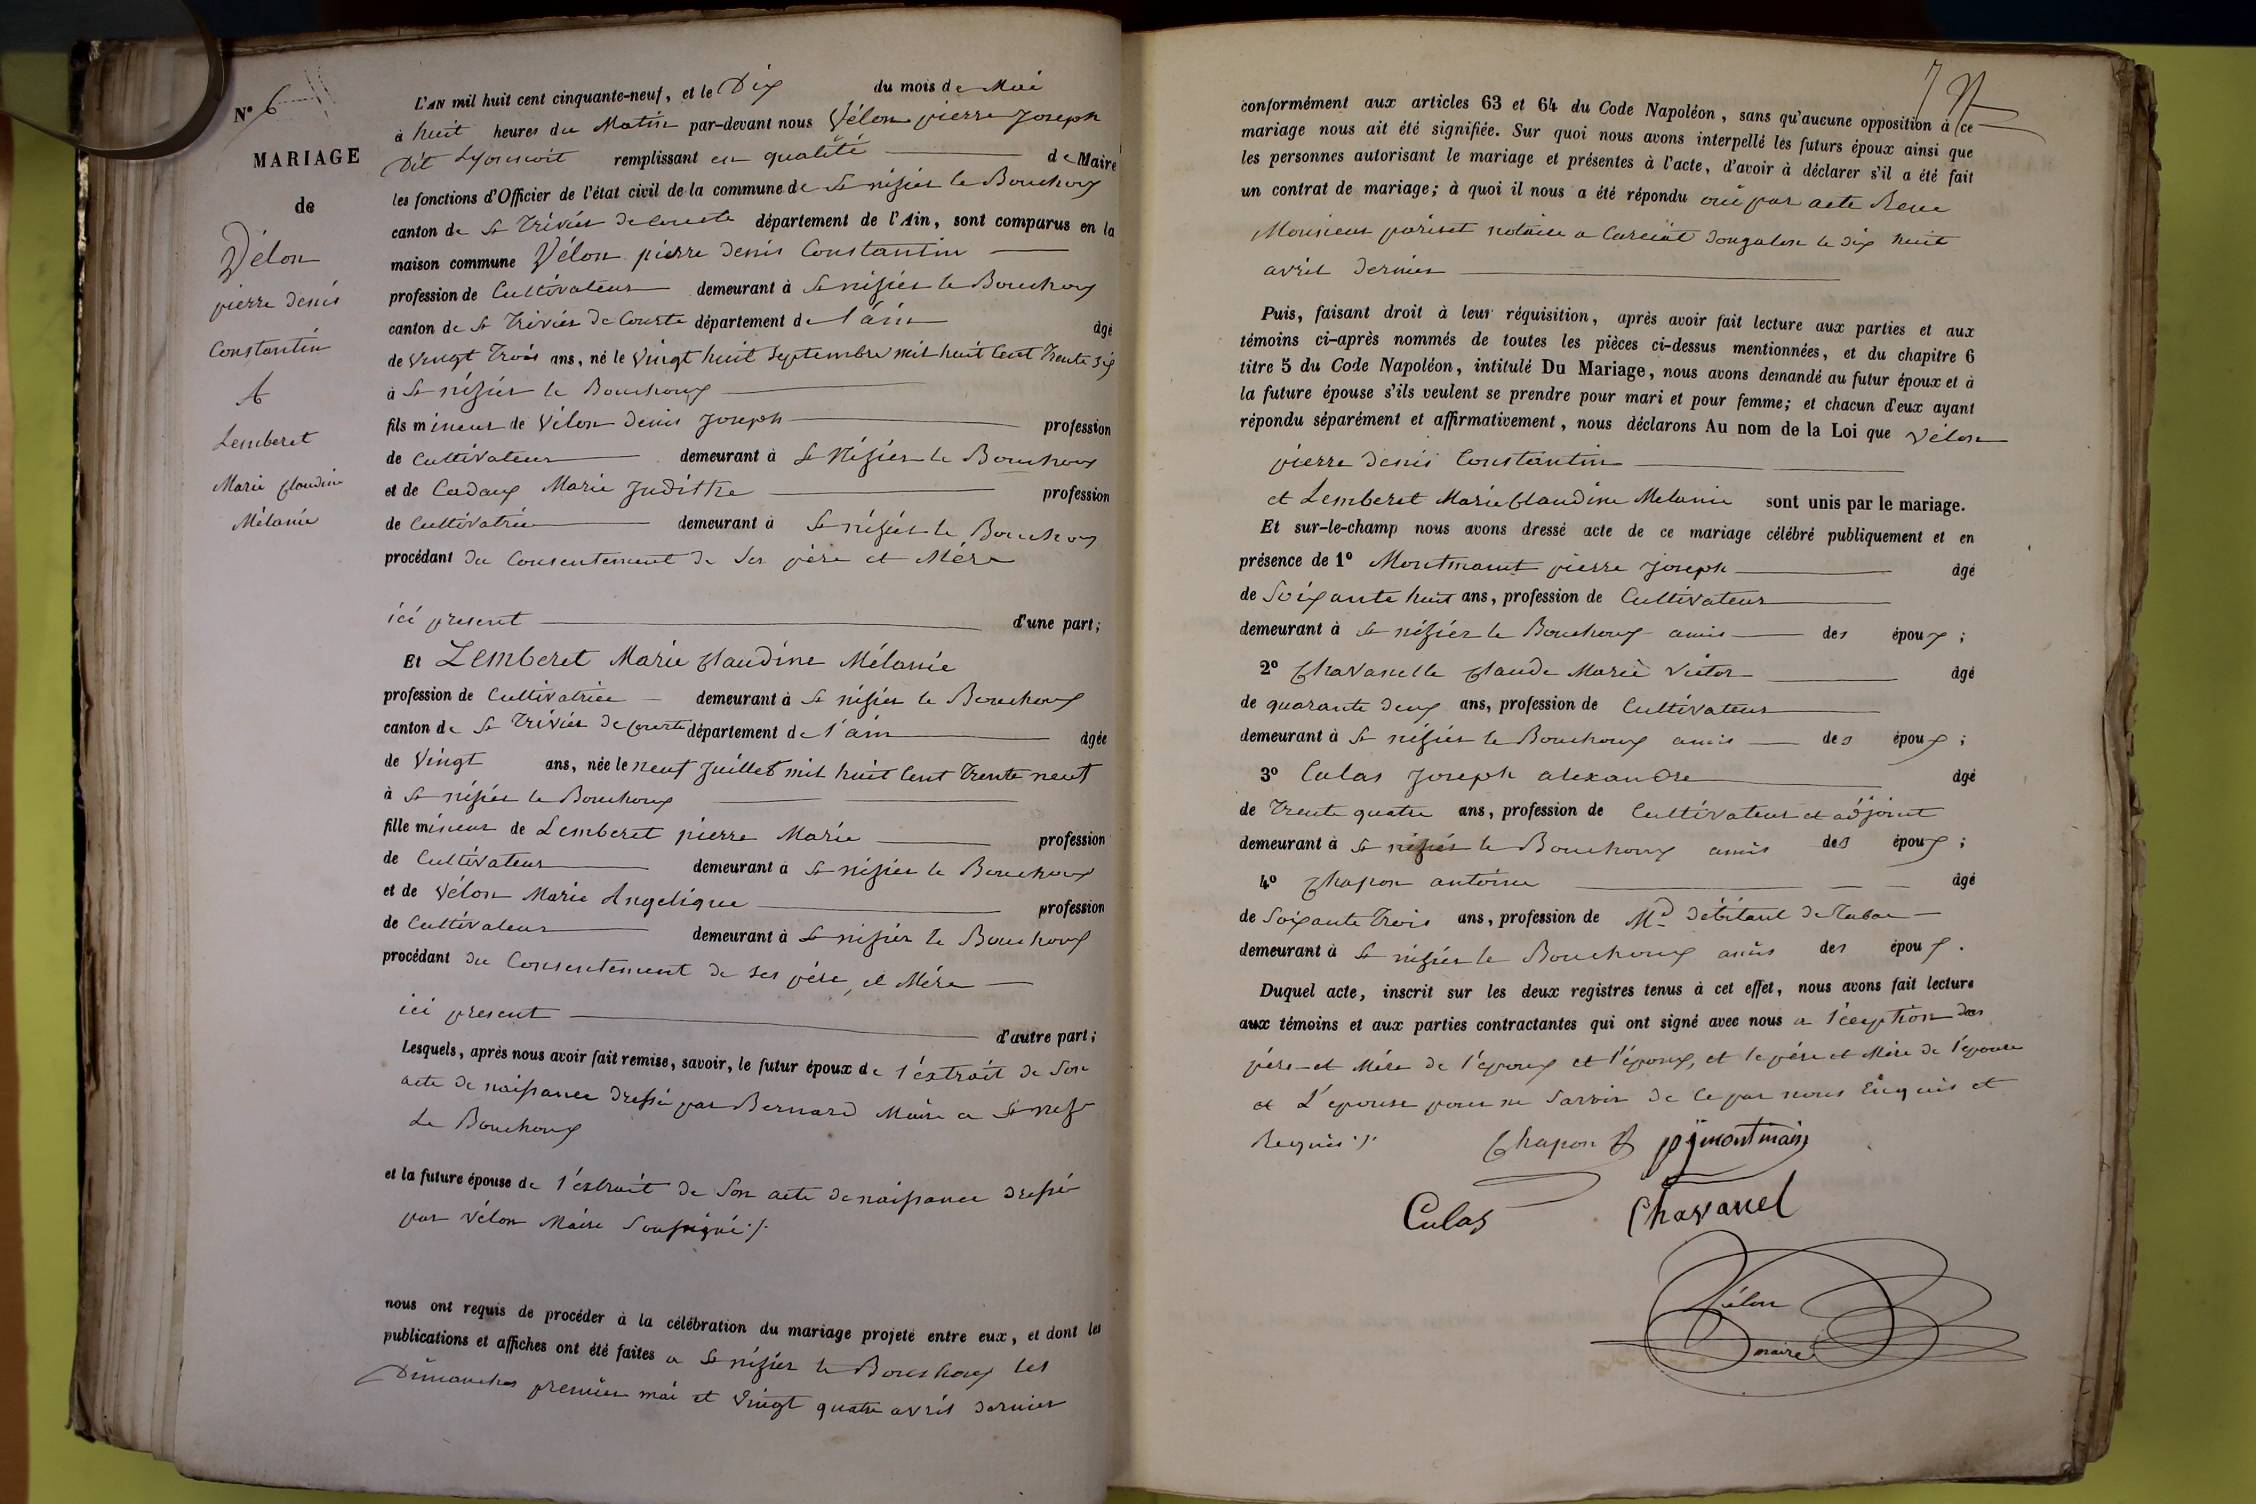 N° 6
MARIAGE
de
Vélon
pierre denis
Constantin
A
Lemberet
Marie Claudine
Mélanie
L'AN mil huit cent cinquante-neuf, et le Dix du mois de Mai
à huit heures du Matin par-devant nous Vélon pierre Joseph
Dit Lyonnoit remplissant en qualité de Maire
les fonctions d'Officier de l'état civil de la commune de St nizier le Bouchoux
canton de St Trivier de Courte département de l'Ain, sont comparus en la
maison commune Vélon pierre denis Constantin
profession de Cultivateur demeurant à St nizier le Bouchoux
canton de St Trivier de Courte département de l'ain âgé
de Vingt Trois ans, né le Vingt huit Septembre mil huit Cent Trente Six
à St nizier le Bouchoux
fils mineur de Vélon denis Joseph profession
de Cultivateur demeurant à St Nizier le Bouchoux
et de Cadoux Marie Judithe profession
de Cultivatrice demeurant à St nizier le Bouchoux
procédant du Consentement de Ses père et Mère
ici present d'une part;
Et Lemberet Marie Claudine Mélanie
profession de Cultivatrice demeurant à St nizier le Bouchoux
canton de St Trivier de Courte département de l'ain âgée
de Vingt ans, née le neuf Juillet mil huit Cent Trente neuf
à St nizier le Bouchoux
fille mineur de Lemberet pierre Marie profession
de Cultivateur demeurant à St nizier le Bouchoux
et de Vélon Marie Angelique profession
de Cultivateur demeurant à St nizier le Bouchoux
procédant du Consentement de Ses père et Mère
ici present d'autre part;
Lesquels, après nous avoir fait remise, savoir, le futur époux de l'éxtrait de Son
acte de naissance dressé par Bernard Maire a St nizr
Le Bouchoux
et la future épouse de l'éxtrait de Son acte de naissance dressé
par Vélon Maire Soussigné ./.
nous ont requis de procéder à la célébration du mariage projeté entre eux, et dont les
publications et affiches ont été faites a St nizier le Bouchoux les
Dimanches premier mai et Vingt quatre avril dernier
7
conformément aux articles 63 et 64 du Code Napoléon, sans qu'aucune opposition à ce
mariage nous ait été signifiée. Sur quoi nous avons interpellé les futurs époux ainsi que
les personnes autorisant le mariage et présentes à l'acte, d'avoir à déclarer s'il a été fait
un contrat de mariage; à quoi il nous a été répondu oui par acte Reçu
Monsieur pariset notaire a Curciat dongalon le dix huit
avril dernier
Puis, faisant droit à leur réquisition, après avoir fait lecture aux parties et aux
témoins ci-après nommés de toutes les pièces ci-dessus mentionnées, et du chapitre 6
titre 5 du Code Napoléon, intitulé Du Mariage, nous avons demandé au futur époux et à
la future épouse s'ils veulent se prendre pour mari et pour femme; et chacun d'eux ayant
répondu séparément et affirmativement, nous déclarons Au nom de la Loi que Vélon
pierre denis Constantin
et Lemberet Marie Claudine Melanie sont unis par le mariage.
Et sur-le-champ nous avons dressé acte de ce mariage célébré publiquement et en
présence de 1° Montmaint pierre Joseph âgé
de Soixante huit ans, profession de Cultivateur
demeurant à St nizier le Bouchoux amis des époux;
2° Chavanelle Claude Marie Victor âgé
de quarante deux ans, profession de Cultivateur
demeurant à St nizier le Bouchoux amis des époux;
3° Culas Joseph alexandre âgé
de Trente quatre ans, profession de Cultivateur et adjoint
demeurant à St nizier le Bouchoux amis des époux;
4° Chapon antoine âgé
de Soixante Trois ans, profession de Md débitant de Tabac
demeurant à St nizier le Bouchoux amis des époux.
Duquel acte, inscrit sur les deux registres tenus à cet effet, nous avons fait lecture
aux témoins et aux parties contractantes qui ont signé avec nous a l'éception des
père et Mère de l'époux et l'époux, et le père et Mère de l'épouse
et L'epouse pour ne Savoir de Ce par nous Enquis et
Requis ./. Chapon pjmontmain
Culas Chavanel
Vélon
maire